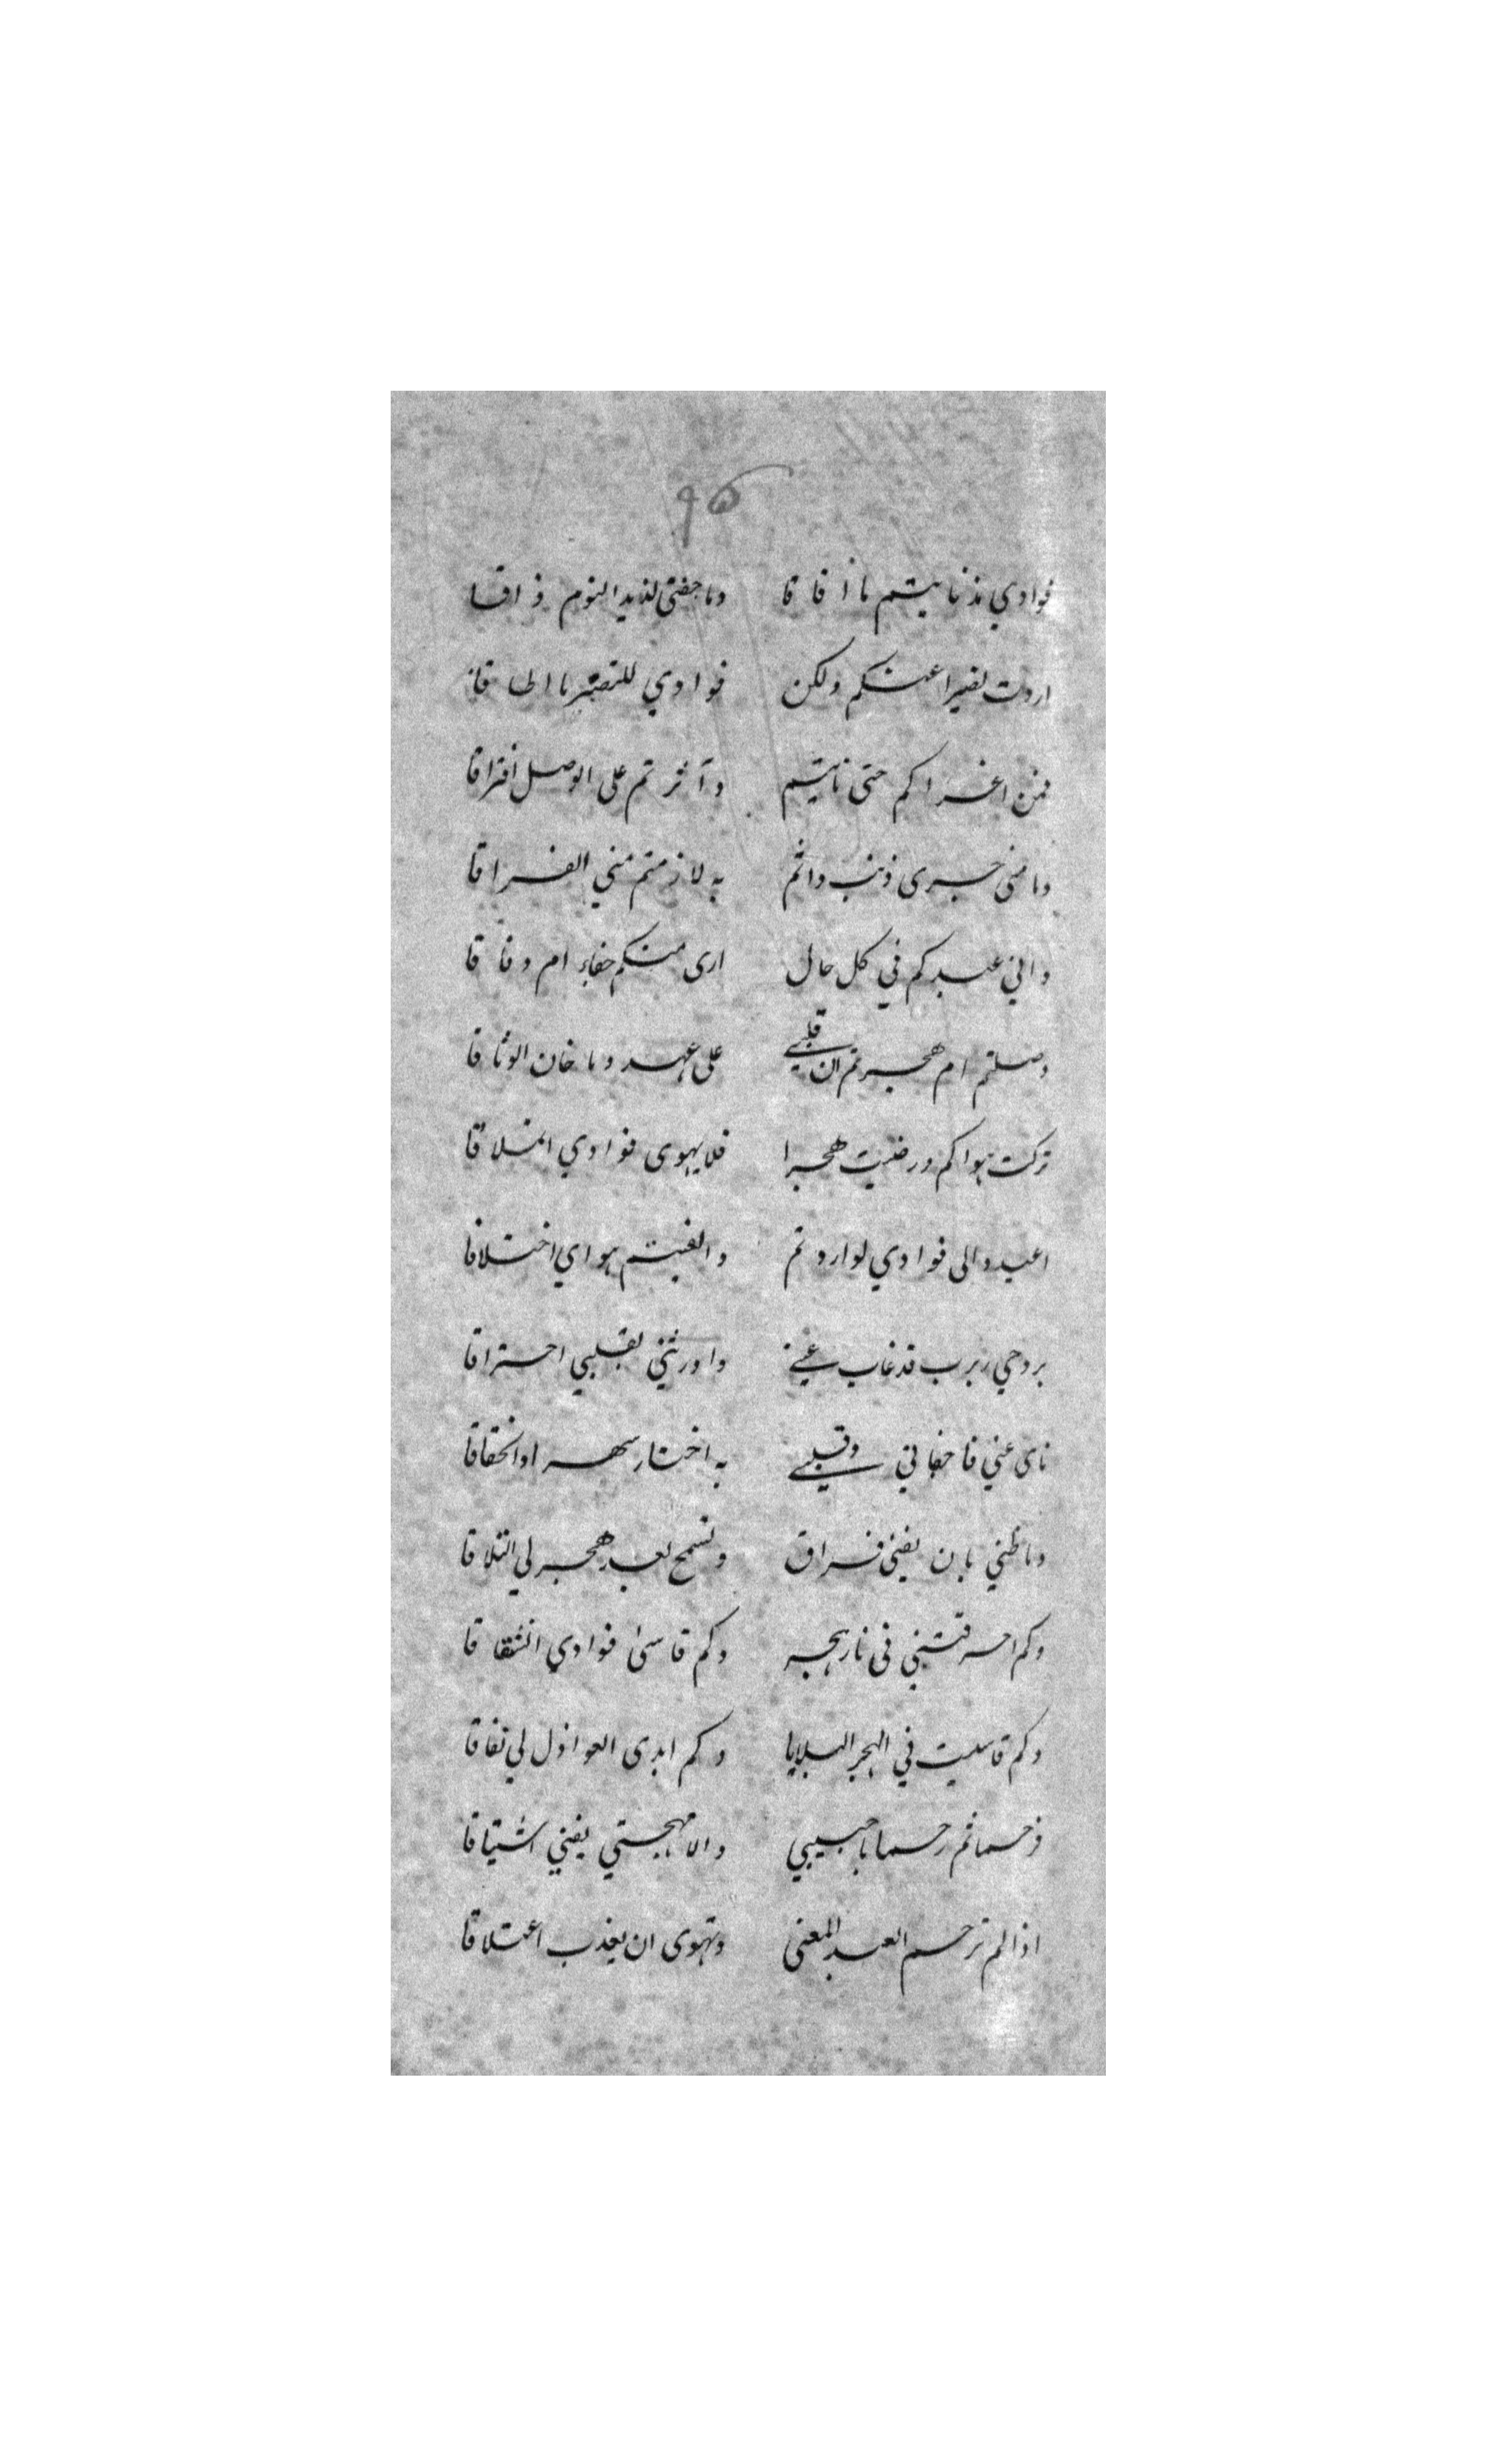 فوادي مذ نايتم ما أفاقا وما جفني لذيذ النوم ذاقا
اردت تصبرا عنكم ولكن فوادي للتصبر ما اطاقا
فمن اغراكم حتى نايتم وآثرتم على الوصل افتراقا
وما مني جرى ذنب وانتم به لازمتم مني الفراقا
واني عبدكم في كل حال ارى منكم جفاء ام وفاقا
وصلتم ام هجرتم ان قلبي على عهد وما خان الوثاقا
تركت هواكم ورضيت هجرا فلا يهوى فوادي التلاقا
اعيدوا لى فوادي لو اردتم والفيتم هواي اختلاقا
بروحي ربرب قد غاب عني واورثني بقلبي احتراقا
ناى عني فاجفاني وقلبي به اختار سهدا وانخفاقا
وما ظني بان يفنى فراق وتسمح بعد هجر لي التلاقا
وكم احرقتني في نار هجر وكم قاسى فوادي انشقاقا
وكم قاسيت في الهجر البلايا وكم ابدى العواذل لي نفاقا
فرحما ثم رحما يا حبيبي والا مهجتي يفني اشتياقا
اذا لم ترحم العبد المعنى وتهوى ان يعذب اعتلاقا